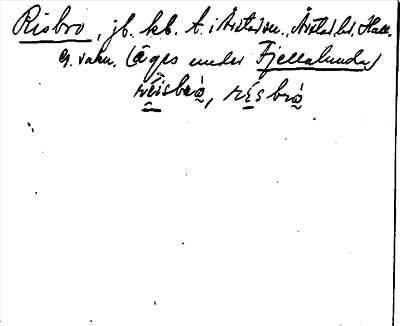 Risbro, jb. hb. t. i Årstad sn., Årstad hd. Hall.
(äges under Fjellalunda)
rèisbró, résbró